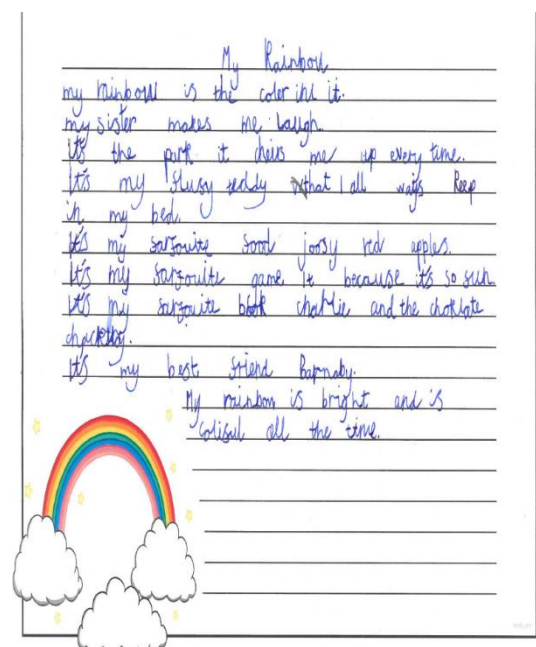 My Rainbow
my rainbow is the coler inl it.
my sister makes me laugh.
It's the park it cheirs me up every time.
It's my flufy teddy that I all ways keep
in my bed.
It's my farfouite food joosy red apples.
It's my farfouite game It because it's so fun.
It's my farfouite book charlie and the choklate
It's my best friend Barnaby.
My rainbow is bright and is
all the time.